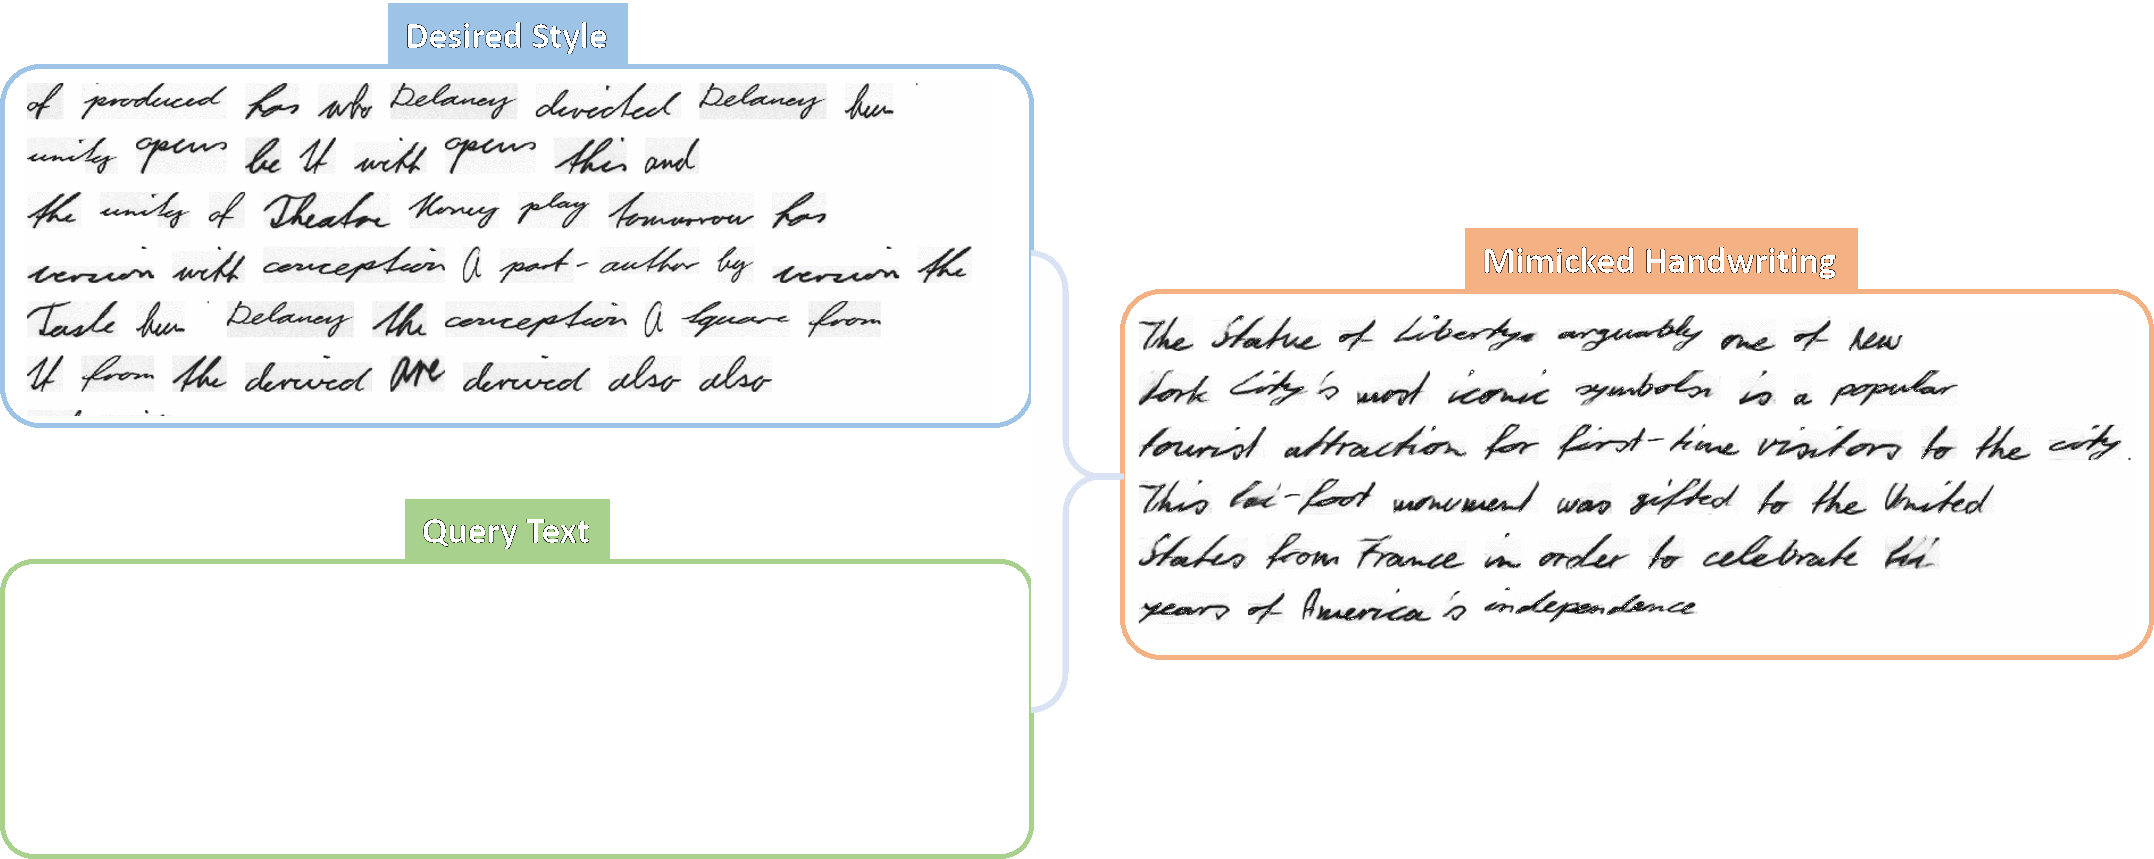 Desired Style
of produced has who Delaney divided Delaney
unity opens be It with opens this and
the unity of Theatre Honey play tomorrow has
version with conception A part- author by version the
Taste Delaney the conception A Square from
It from the derived are derived also also
Query Text
Mimicked Handwriting
The Statue of Liberty, arguably one of New
York City's most iconic symbols, is a popular
tourist attraction for first-time visitors to the city.
This foot monument was gifted to the United
States from France in order to celebrate
years of America's independence